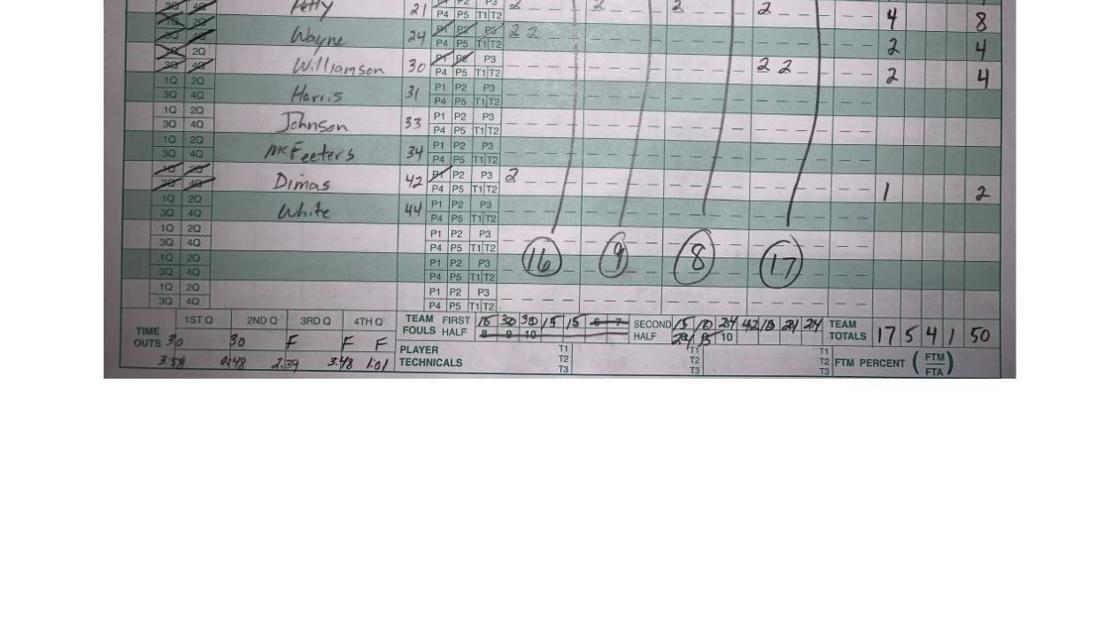 3Q 4Q Petty 21 P1 P2 P3 2 2 2 2 4 8
P4 P5 T1 T2
1Q 2Q Wayne 24 P1 P2 P3 2 2 2 4
3Q 4Q P4 P5 T1 T2
2Q Williamson 30 P1 P2 P3 2 2 2 4
3Q 4Q P4 P5 T1 T2
1Q 2Q Harris 31 P1 P2 P3
3Q 4Q P4 P5 T1 T2
1Q 2Q Johnson 33 P1 P2 P3
3Q 4Q P4 P5 T1 T2
1Q 2Q McFeeters 34 P1 P2 P3
3Q 4Q P4 P5 T1 T2
1Q 2Q Dimas 42 P1 P2 P3 2 1 2
3Q 4Q P4 P5 T1 T2
1Q 2Q White 44 P1 P2 P3
3Q 4Q P4 P5 T1 T2
1Q 2Q P1 P2 P3
3Q 4Q P4 P5 T1 T2 16 9 8 17
1Q 2Q P1 P2 P3
3Q 4Q P4 P5 T1 T2
1Q 2Q P1 P2 P3
3Q 4Q P4 P5 T1 T2
1ST Q 2ND Q 3RD Q 4TH Q TEAM FOULS FIRST HALF 15 30 30 15 15 6 7 SECOND HALF 15 10 24 42 24 24 TEAM TOTALS 17 5 4 1 50
8 9 10 10
TIME OUTS 30 30 F F F
3:58 0:48 2:39 3:48 1:01
PLAYER TECHNICALS T1 T2 T3 T1 T2 T3 T1 T2 T3 FTM PERCENT (FTM/FTA)